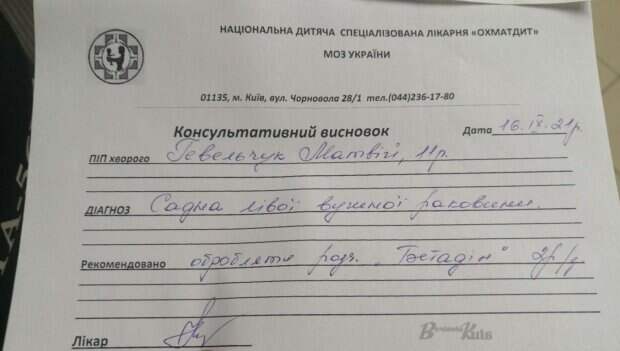 НАЦІОНАЛЬНА ДИТЯЧА СПЕЦІАЛІЗОВАНА ЛІКАРНЯ «ОХМАТДИТ»
МОЗ УКРАЇНИ
01135, м. Київ, вул. Чорновола 28/1 тел.(044)236-17-80
Консультативний висновок Дата 16.IX.21р
ПІП хворого Гевельчук Матвій, 11р.
ДІАГНОЗ Садна лівої вушної раковини.
Рекомендовано обробляти розч. „Бетадін" 2р/д
Лікар